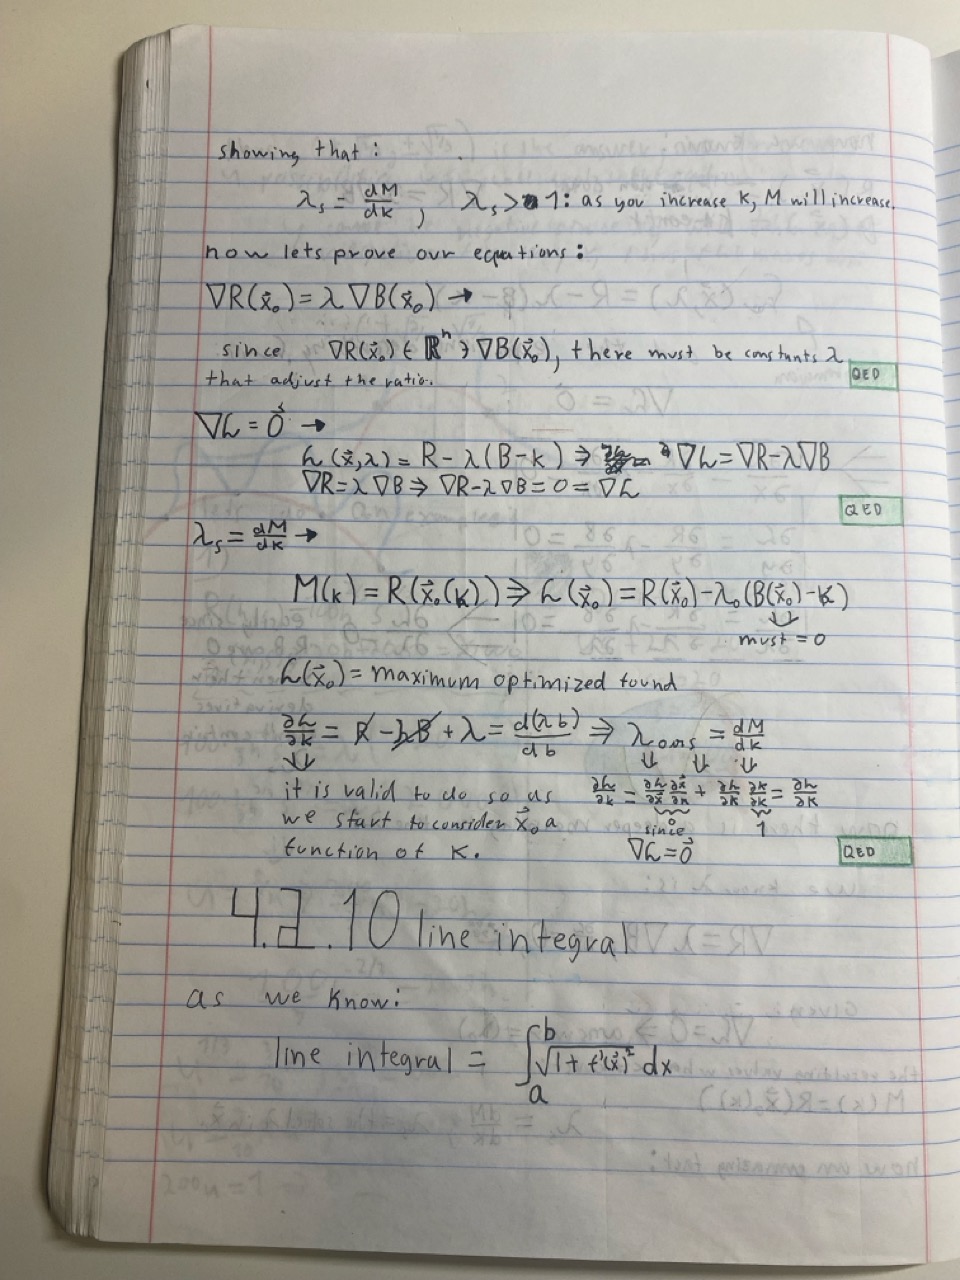 showing that:
λₛ = dM/dk, λₛ > 1: as you increase k, M will increase.
now lets prove our equations:
∇R(x⃗₀) = λ ∇B(x⃗₀) →
since ∇R(x⃗₀) ∈ ℝⁿ ∋ ∇B(x⃗₀), there must be constants λ
that adjust the ratio.
QED
∇L = 0⃗ →
L(x⃗,λ) = R - λ(B-k) ⇒ ∇L = ∇R-λ∇B
∇R = λ∇B ⇒ ∇R-λ∇B = 0 = ∇L
QED
λₛ = dM/dk →
M(k) = R(x⃗₀(k)) ⇒ L(x⃗₀) = R(x⃗₀)-λ₀(B(x⃗₀)-k)
must = 0
L(x⃗₀) = maximum optimized found
∂L/∂k = R - λB + λ = d(λb)/db ⇒ λ = dM/dk
it is valid to do so as ∂L/∂k = ∂L/∂x⃗ ∂x⃗/∂k + ∂L/∂k ∂k/∂k = ∂L/∂k
0 1
we start to consider x⃗₀ a since
function of k. ∇L = 0⃗
QED
4.2.10 line integral
as we know:
line integral = ∫ₐᵇ √(1 + f'(x⃗)²) dx